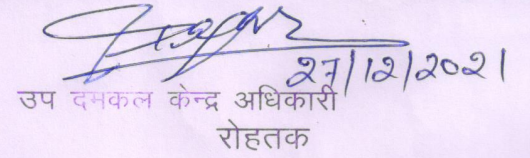 27/12/2021
उप दमकल केन्द्र अधिकारी
रोहतक